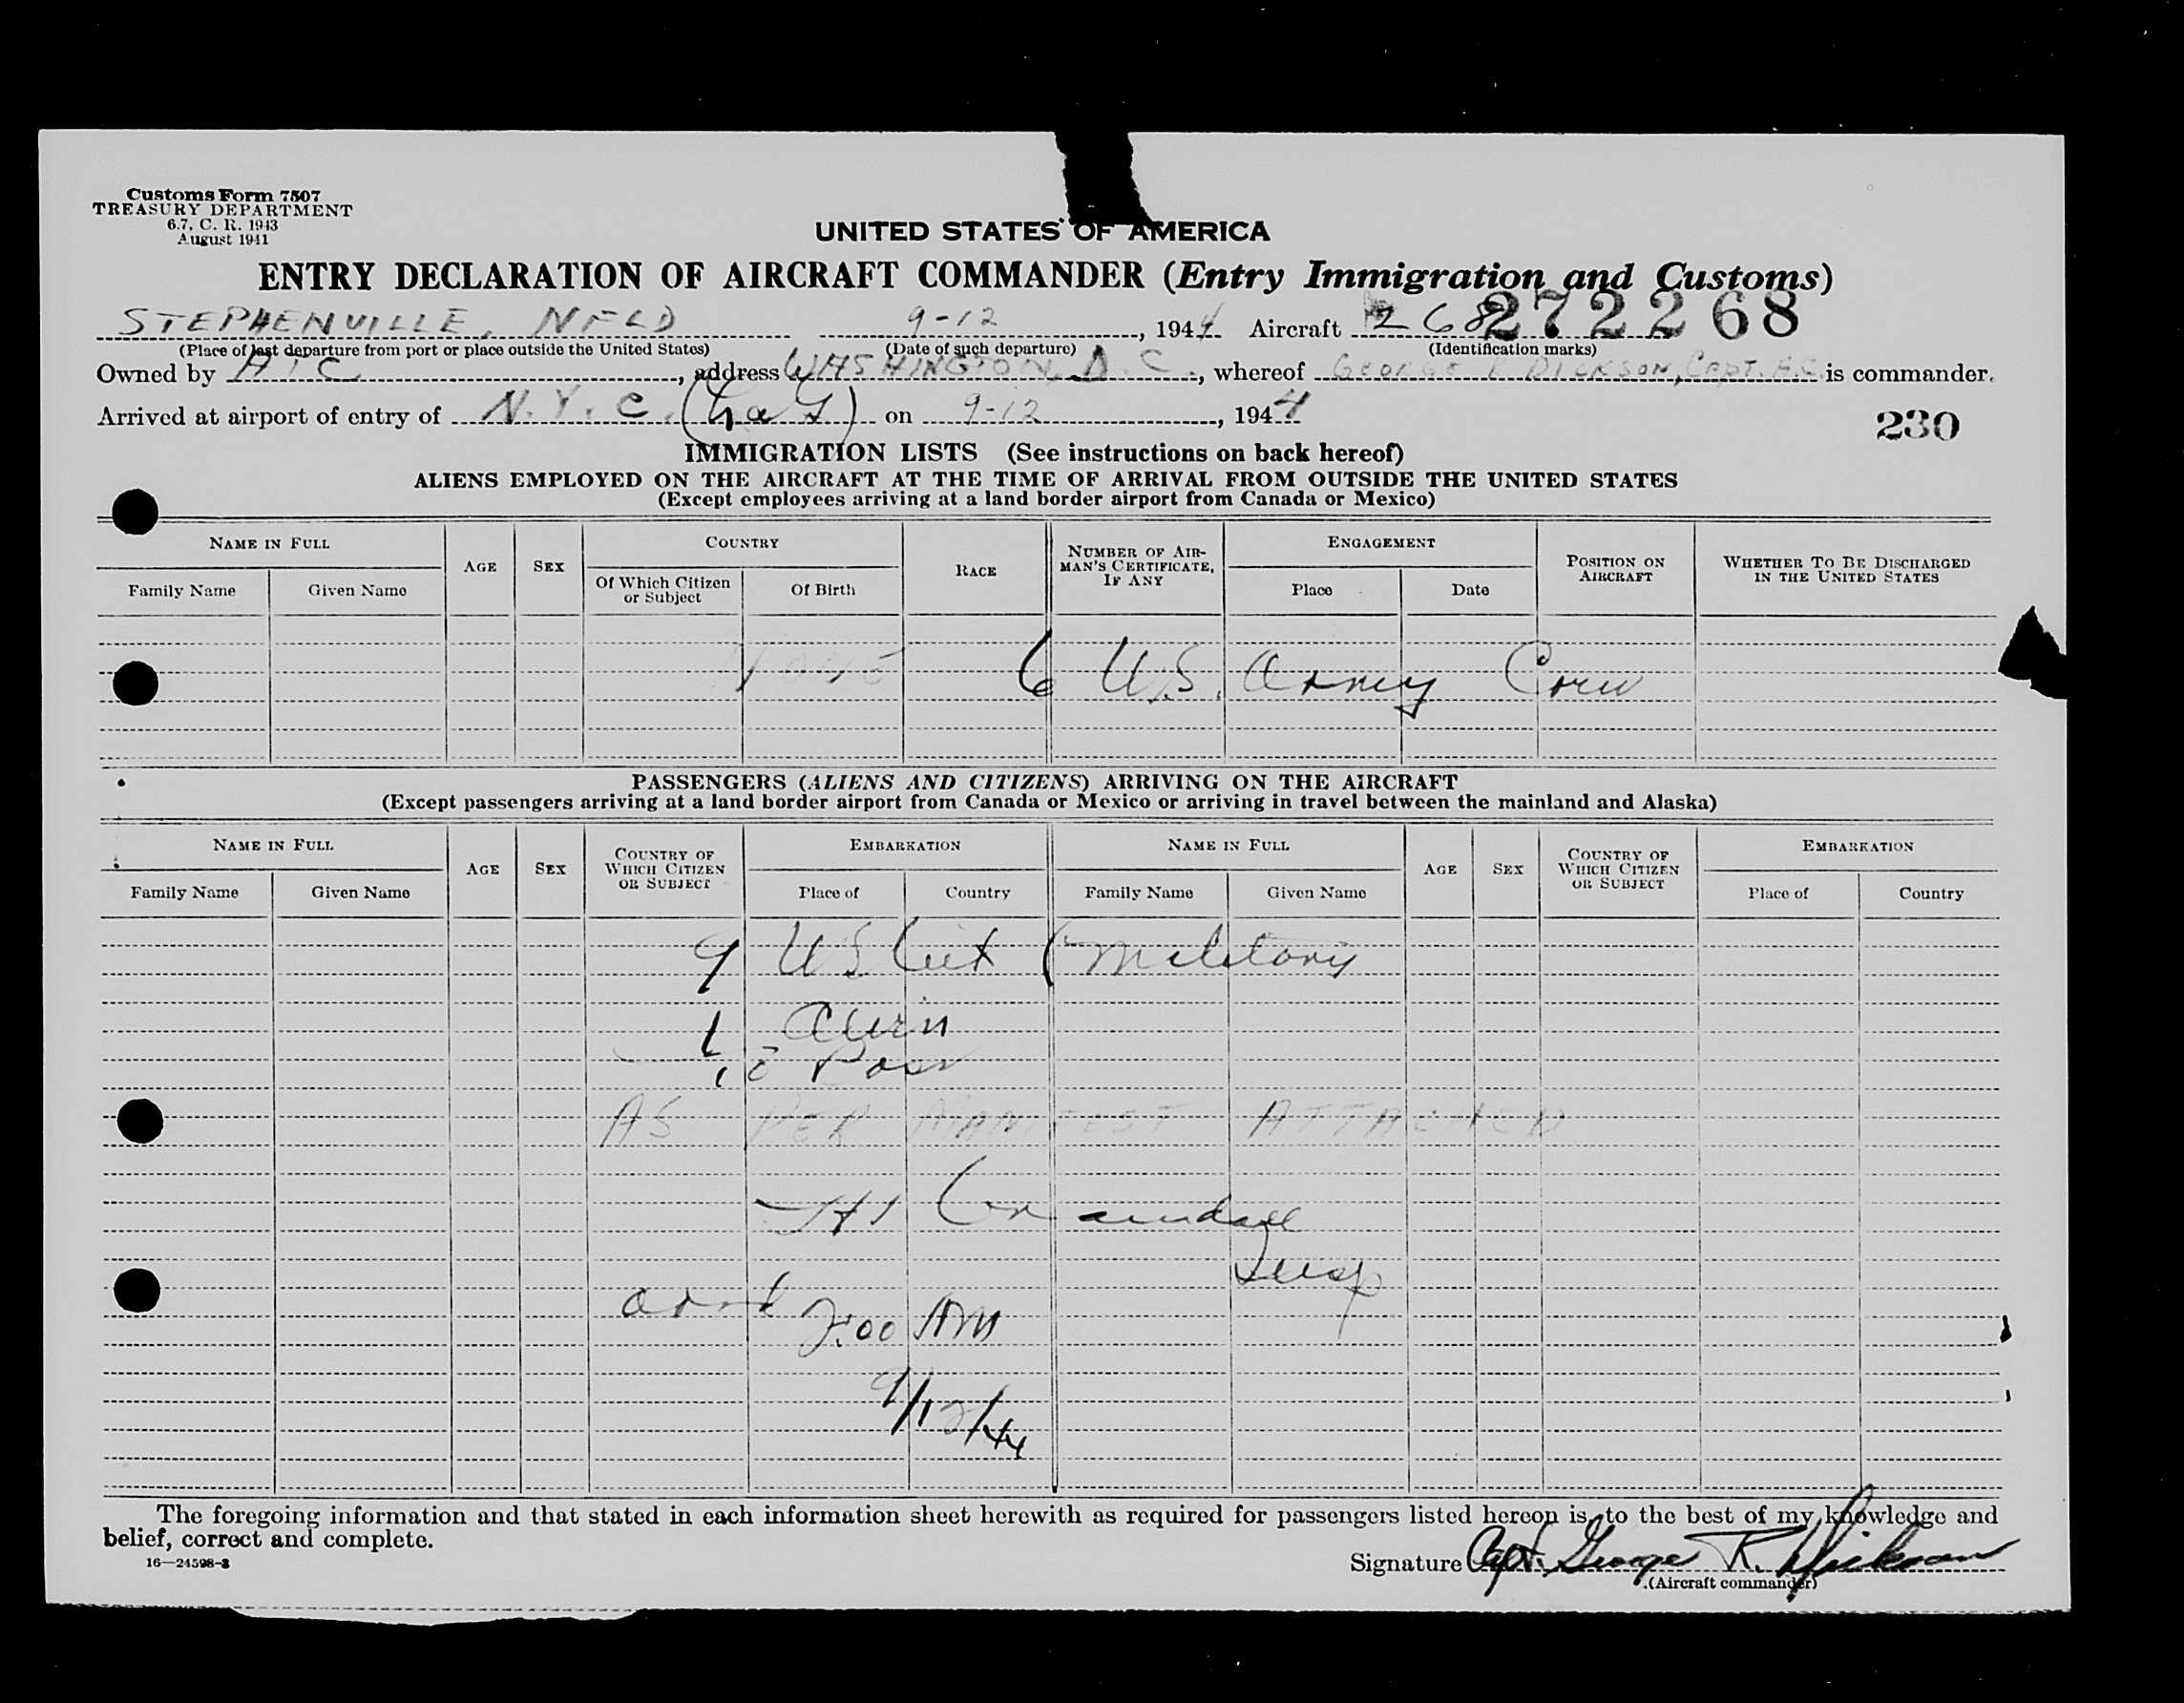 Customs Form 7507
TREASURY DEPARTMENT
6.7, C. R. 1943
August 1941
UNITED STATES OF AMERICA
ENTRY DECLARATION OF AIRCRAFT COMMANDER (Entry Immigration and Customs)
STEPHENVILLE, NFLD 9-12, 1944 Aircraft 268 272268
(Place of last departure from port or place outside the United States) (Date of such departure) (Identification marks)
Owned by ATC, address WASHINGTON, D.C., whereof GEORGE R DICKSON, CAPT. A.C. is commander.
Arrived at airport of entry of N.Y.C. (LaG) on 9-12, 1944
230
IMMIGRATION LISTS (See instructions on back hereof)
ALIENS EMPLOYED ON THE AIRCRAFT AT THE TIME OF ARRIVAL FROM OUTSIDE THE UNITED STATES
(Except employees arriving at a land border airport from Canada or Mexico)
NAME IN FULL AGE SEX COUNTRY RACE NUMBER OF AIRMAN'S CERTIFICATE, IF ANY ENGAGEMENT POSITION ON AIRCRAFT WHETHER TO BE DISCHARGED IN THE UNITED STATES
Family Name Given Name Of Which Citizen or Subject Of Birth Place Date
6 U.S. Army Crew
PASSENGERS (ALIENS AND CITIZENS) ARRIVING ON THE AIRCRAFT
(Except passengers arriving at a land border airport from Canada or Mexico or arriving in travel between the mainland and Alaska)
NAME IN FULL AGE SEX COUNTRY OF WHICH CITIZEN OR SUBJECT EMBARKATION NAME IN FULL AGE SEX COUNTRY OF WHICH CITIZEN OR SUBJECT EMBARKATION
Family Name Given Name Place of Country Family Name Given Name Place of Country
9 US Cit (Military
1 Alien
10 Pass
AS PER MANIFEST ATTACHED
Insp
arrd 2:00 AM
9/12/44
The foregoing information and that stated in each information sheet herewith as required for passengers listed hereon is, to the best of my knowledge and
belief, correct and complete.
16—24598-3
Signature Capt. George R. Dickson
(Aircraft commander)